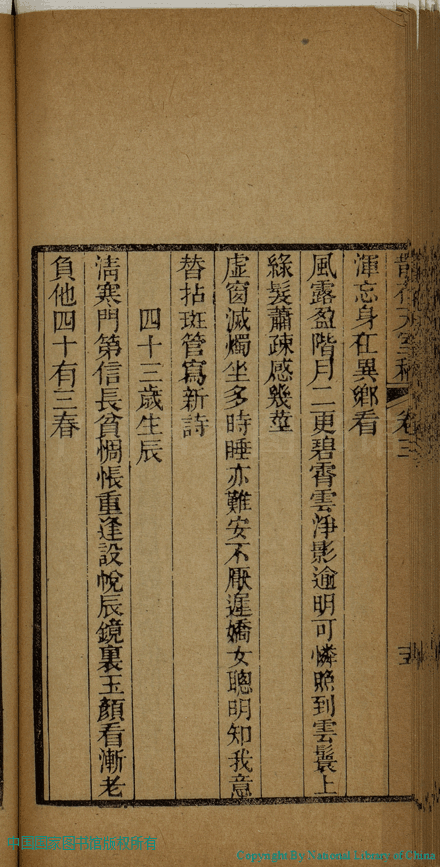 散花天室稿 卷三 五
渾忘身在異鄉看
風露盈階月二更碧霄雲淨影逾明可憐照到雲鬟上
綠髮蕭疎感幾莖
虛窗滅燭坐多時睡亦難安不厭遲嬌女聰明知我意
替拈斑管寫新詩
四十三歲生辰
淸寒門第信長貧惆悵重逢設帨辰鏡裏玉顏看漸老
負他四十有三春
中国国家图书馆版权所有
Copyright By National Library of China